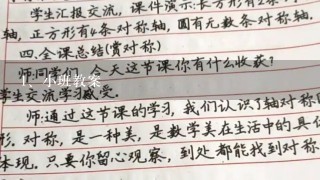 学生汇报交流，课件演示：长方形有2条
轴，正方形有4条对称轴，圆有无数条对称轴.
四.全课总结(赏对称)
师:同学们，今天这节课你有什么收获?
1、小班教案
学生交流学习感受.
师:通过这节课的学习，我们认识了轴对称
形. 对称，是一种美，是数学美在生活中的具体
体现. 只要你留心观察，到处都能找到对称